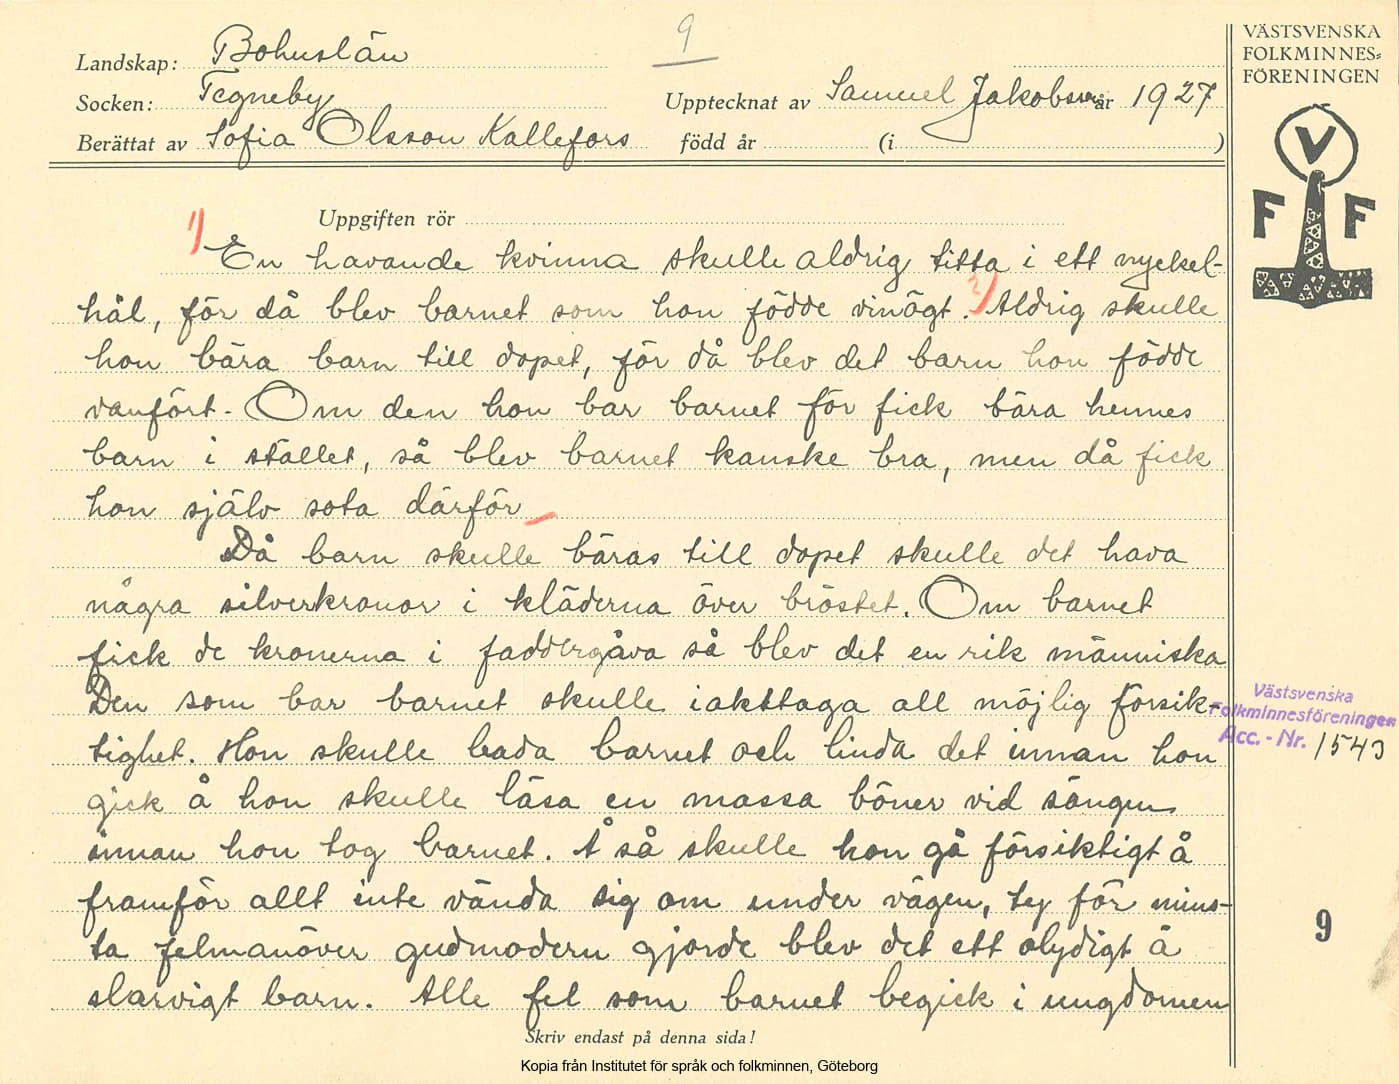 9
Landskap: Bohuslän
Socken: Tegneby
Upptecknat av Samuel Jakobsson år 1927
Berättat av Sofia Olsson Kallefors född år (i )
VÄSTSVENSKA
FOLKMINNES=
FÖRENINGEN
V
F F
Uppgiften rör
1) En havande kvinna skulle aldrig titta i ett nyckel-
hål, för då blev barnet som hon födde vinögt. 2) Aldrig skulle
hon bära barn till dopet, för då blev det barn hon födde
vanfört. Om den hon bar barnet för fick bära hennes
barn i stället, så blev barnet kanske bra, men då fick
hon själv sota därför
Då barn skulle bäras till dopet skulle det hava
några silverkronor i kläderna över bröstet. Om barnet
fick de kronerna i faddergåva så blev det en rik människa
Den som bar barnet skulle iakttaga all möjlig försik-
tighet. Hon skulle bada barnet och linda det innan hon
gick å hon skulle läsa en massa böner vid sängen
innan hon tog barnet. Å så skulle hon gå försiktigt å
framför allt inte vända sig om under vägen, ty för mins-
ta felmanöver gudmodern gjorde blev det ett olydigt å
slarvigt barn. Alle fel som barnet begick i ungdomen
Västsvenska
Folkminnesföreningen
Acc. - Nr. 1543
9
Skriv endast på denna sida!
Kopia från Institutet för språk och folkminnen, Göteborg